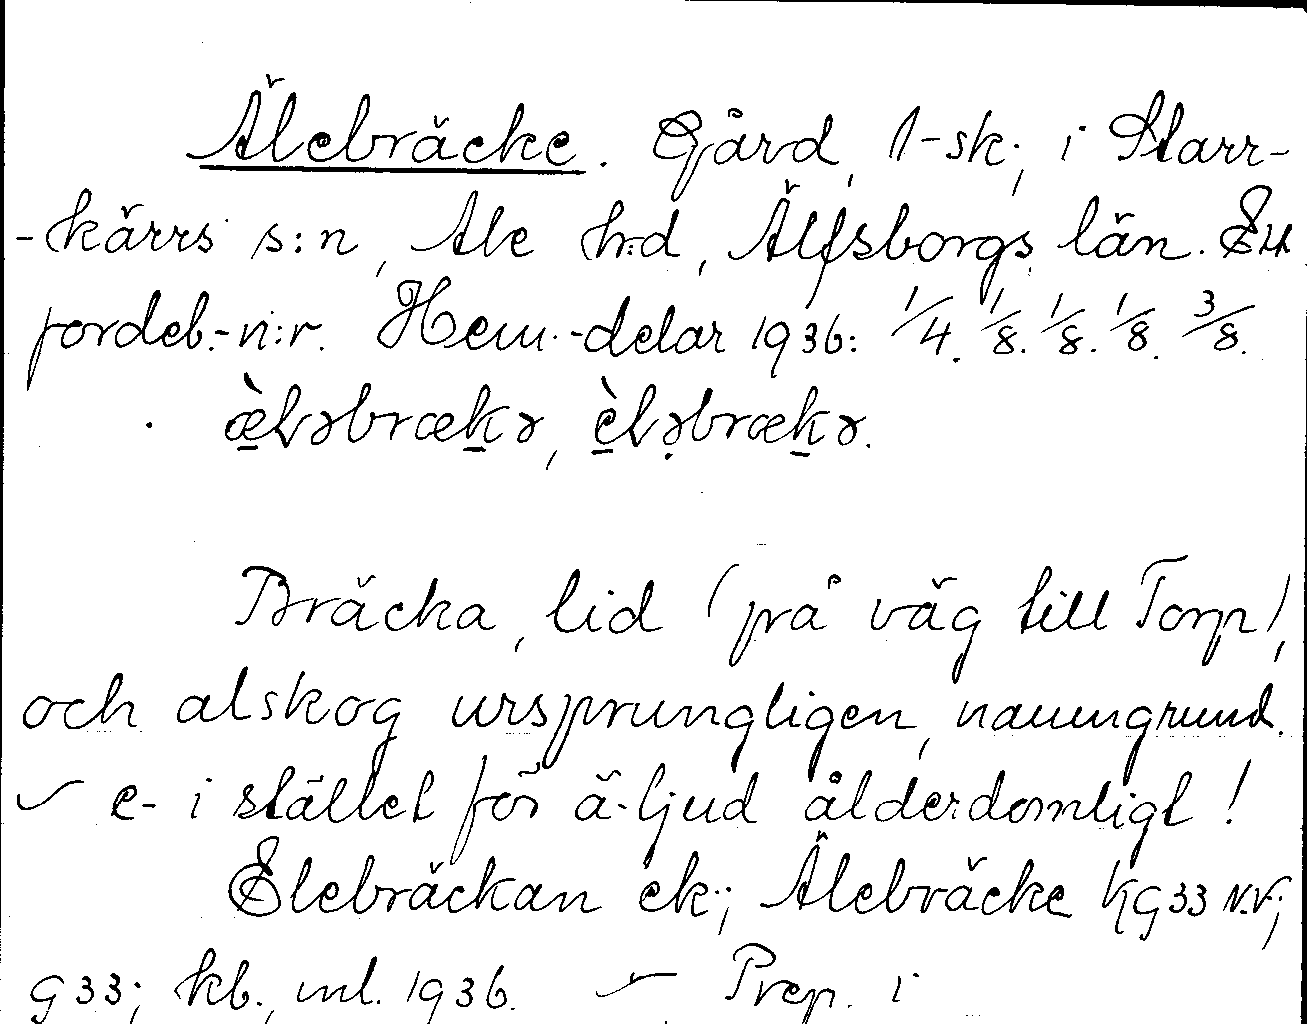 Älebräcke. Gård, 1-sk; i Starr-
-kärrs s:n, Ale h:d, Älfsborgs län. Ett
jordeb.-n:r. Hem.-delar 1936: 1/4. 1/8. 1/8. 1/8. 3/8.
æ̀lɘbrækɘ, èlɘbrækɘ.
Bräcka, lid (på väg till Torp),
och alskog ursprungligen, namngrund.
e- i stället för ä-ljud ålderdomligt!
Elebräckan ek.; Älebräcke KG33 N.V;
G33; kb., ml. 1936. Prep. i